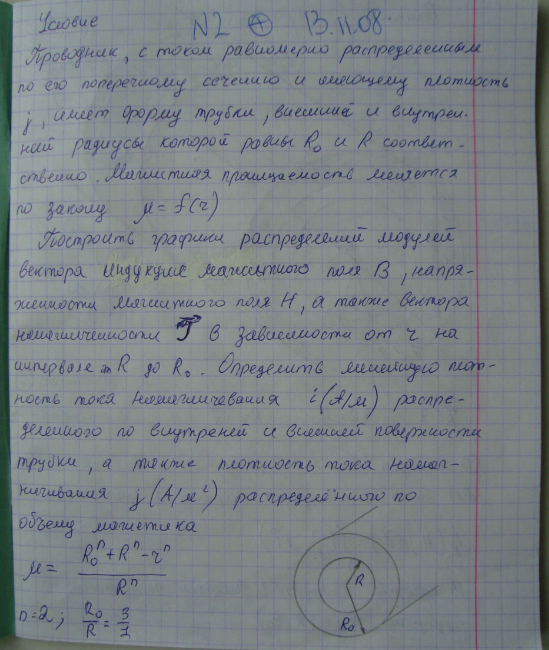 Условие N2 ⊕ 13.11.08.
Проводник, с током равномерно распределенным
по его поперечному сечению и имеющему плотность
j, имеет форму трубки, внешний и внутрен-
ний радиусы которой равны R₀ и R соответ-
ственно. Магнитная проницаемость меняется
по закону μ = f(r)
Построить графики распределений модулей
вектора индукции магнитного поля B, напря-
женности магнитного поля H, а также вектора
намагниченности J в зависимости от r на
интервале от R до R₀. Определить линейную плот-
ность тока намагничевания i (А/м) распре-
деленного по внутреней и внешней поверхности
трубки, а также плотность тока намаг-
ничивания j (А/м²) распределённого по
объему магнетика
μ = (R₀ⁿ + Rⁿ - rⁿ) / Rⁿ
n=2; R₀/R = 3/1
R
R₀